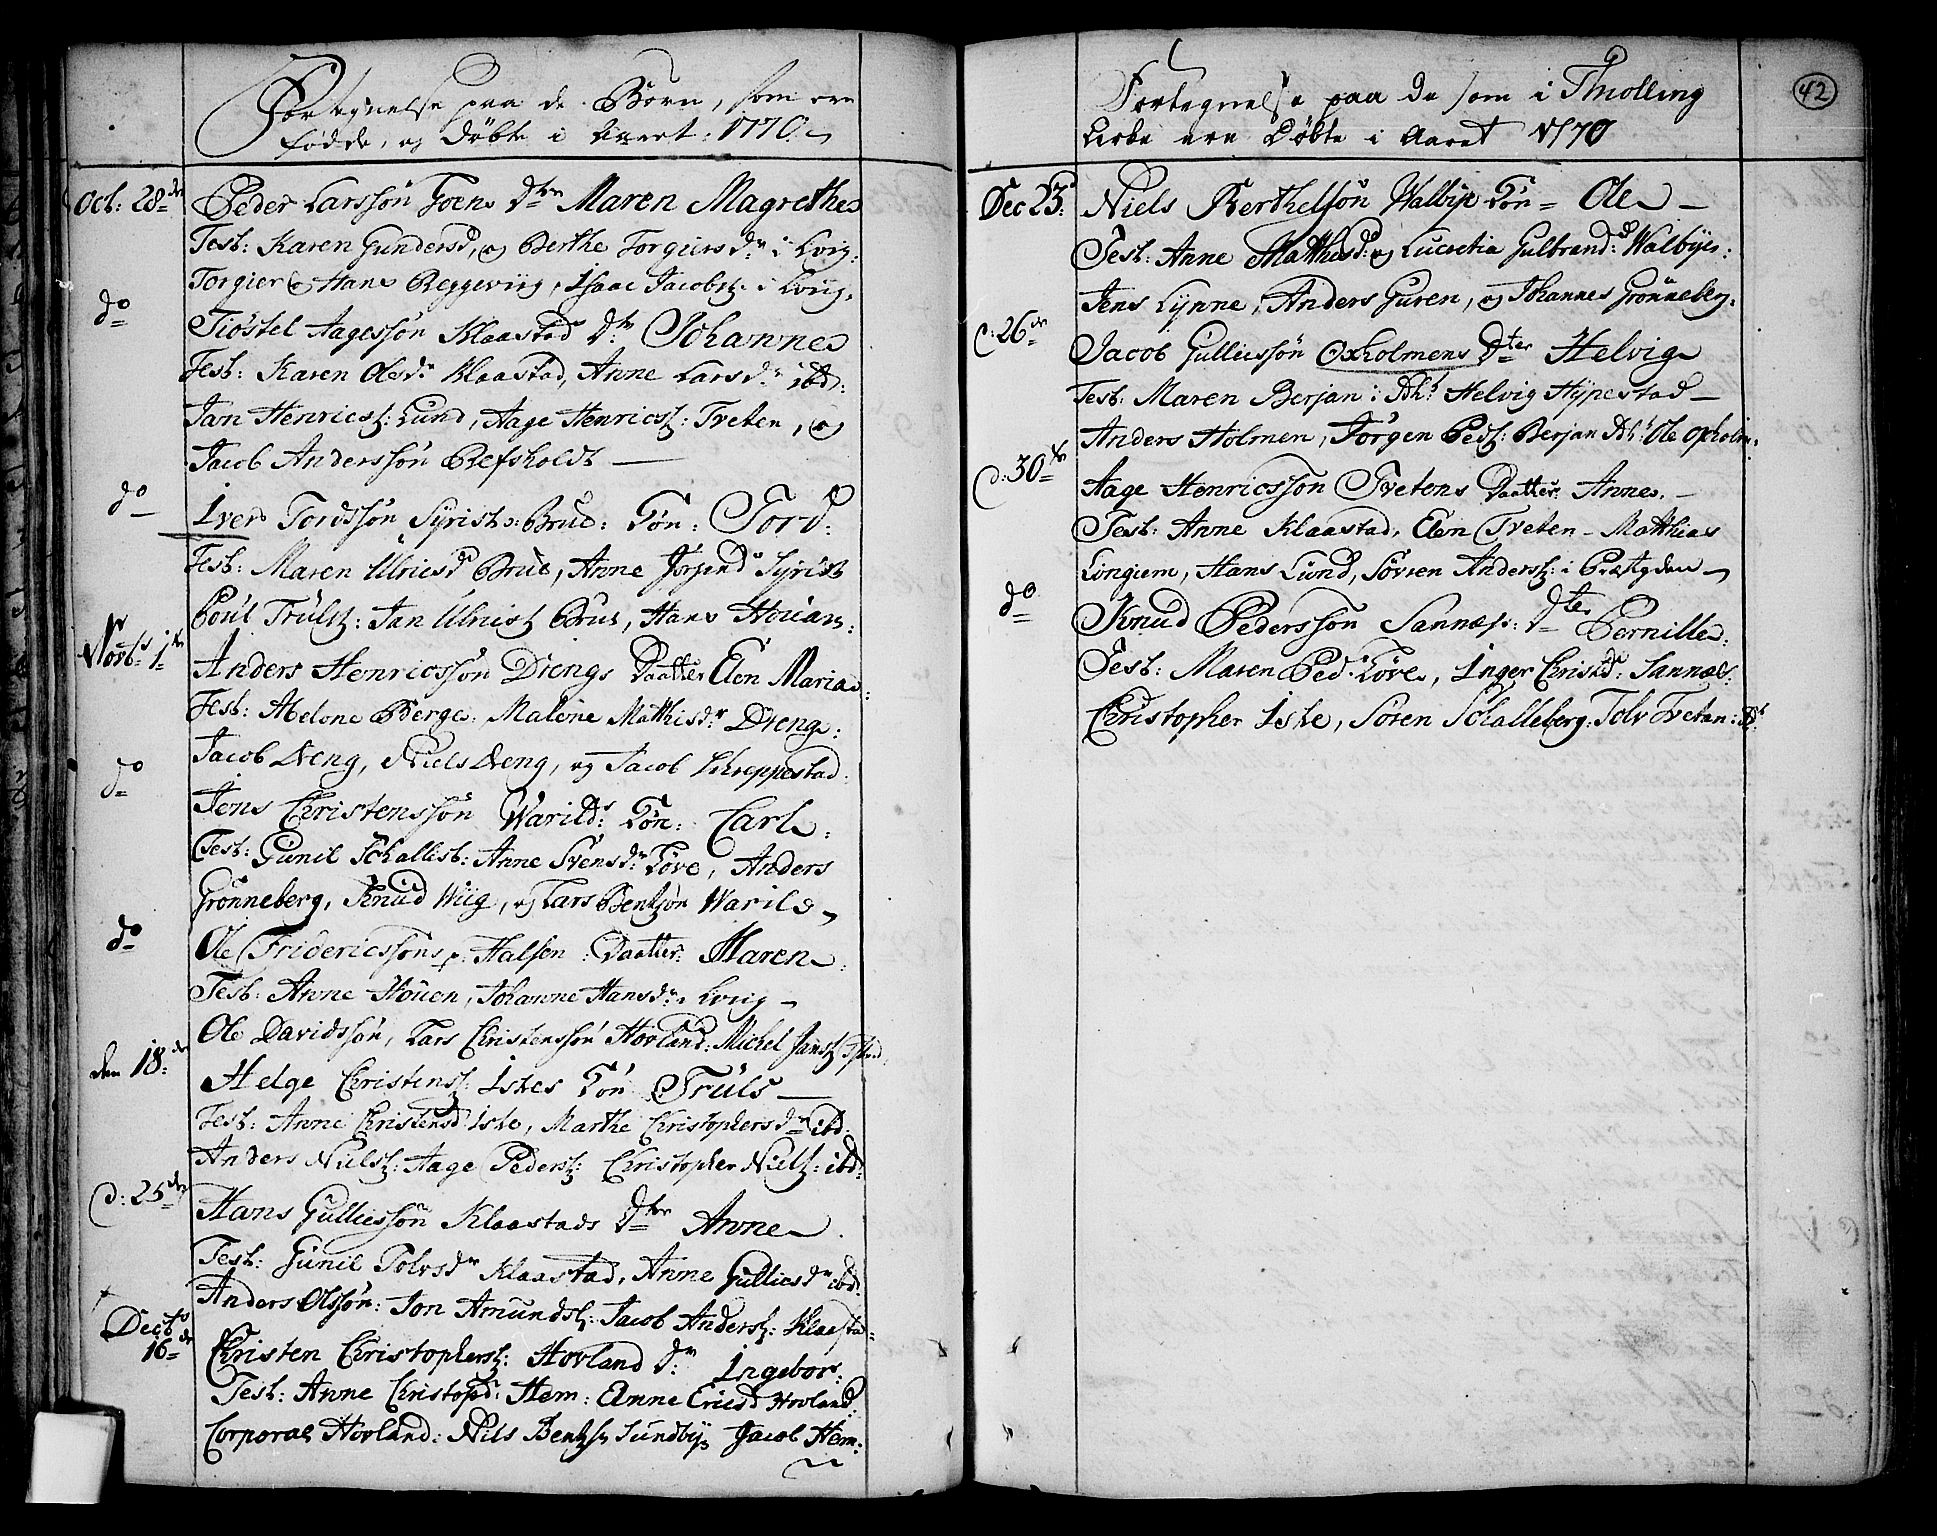 Fortegnelse paa de Børn, som ere
fødde, og Døbte i Aaret: 1770.
Oct: 28de Peder Larssøn Foens Dtr Maren Magrethe
Test: Karen Gundersd, og Berthe Torgiers Dr i
Torgier og Hans Reggeviig, Isaac Jacobs: i
do Tiøstel Aagessøn Klaastad Dtr Johanne
Test: Karen Olesdr Klaastad, Anne Larsdr ibd:
Jan Henrics: Lund, Aage Henrics: Tveten, og
Jacob Anderssøn Refsholdt
do Iver Tordssøn Syrist Brue: Søn: Tord:
Test: Maren Ulricsd Brue, Anne Jørgend Syrist
Poul Truls: Jan Ulrics Brue, Hans Houan:
Novbs 1te Anders Henricssøn Drengs Daatter Elen Maria:
Test: Helene Berge: Malene Matthisdr Dreng:
Jacob Dreng, Niels Dreng, og Jacob Skreppestad
do Jens Christenssøn Warilds: Søn: Carl:
Test: Gunil Schallist: Anne Svensdr Løve, Anders
Grønneberg, Knud Wiig, og Lars Bentsøn Warild
do Ole Fridericssøns Halsen: Daatter: Maren:
Test: Anne Houen, Johanne Hansdr
Ole Davidssøn, Lars Christenssøn Hovland: Michel Jans
den 18de Helge Christens: Iskes Søn Truls
Test: Anne Christensd Iske, Marthe Christophersdr ibd:
Anders Niels: Aage Peders: Christopher Niels: ibd:
d: 25de Hans Gulliessøn Klaastads Dter Anne
Test: Gunil Tolvsdr Klaastad, Anne Gulliesdr ibd:
Anders Olssøn: Jon Amunds: Jacob Anders: Klaasta-
Decbs 16de Christen Christophers: Hovland Dr: Ingebor:
Test: Anne Christopsd: Hem: Anne Ericsd Hovland:
Corporal Hovland: Nils Bents Sundby, Jacob Hem:
42
Fortegnelse paa de som i Thiølling
Kirke ere Døbte i Aaret 1770
Dec 23: Niels Berthelsøn Walbye Søn - Ole
Test: Anne Matthisd: og Lucretia Gulbrandsd: Walbye:
Jens Lynne, Anders Guren, og Johannes Grønneberg.
d: 26de Jacob Gulliessøn Oxholmens Dter Helvig
Test: Maren Berjan: Helvig Hypestad
Anders Holmen, Jørgen Peds: Berjan Ole Oxholm:
d: 30te Aage Henricssøn Tvetens Daatter Anne.
Test: Anne Klaastad, Elen Tveten - Matthias
Lingiem, Hans Lund, Søvren Anders: i Præstgden
do Knud Pederssøn Sannæss: Dter Pernille:
Test: Maren Ped: Løve, Inger Christd: Sannæs:
Christopher Iske, Søren Schalleberg: Tolv Tvetan: